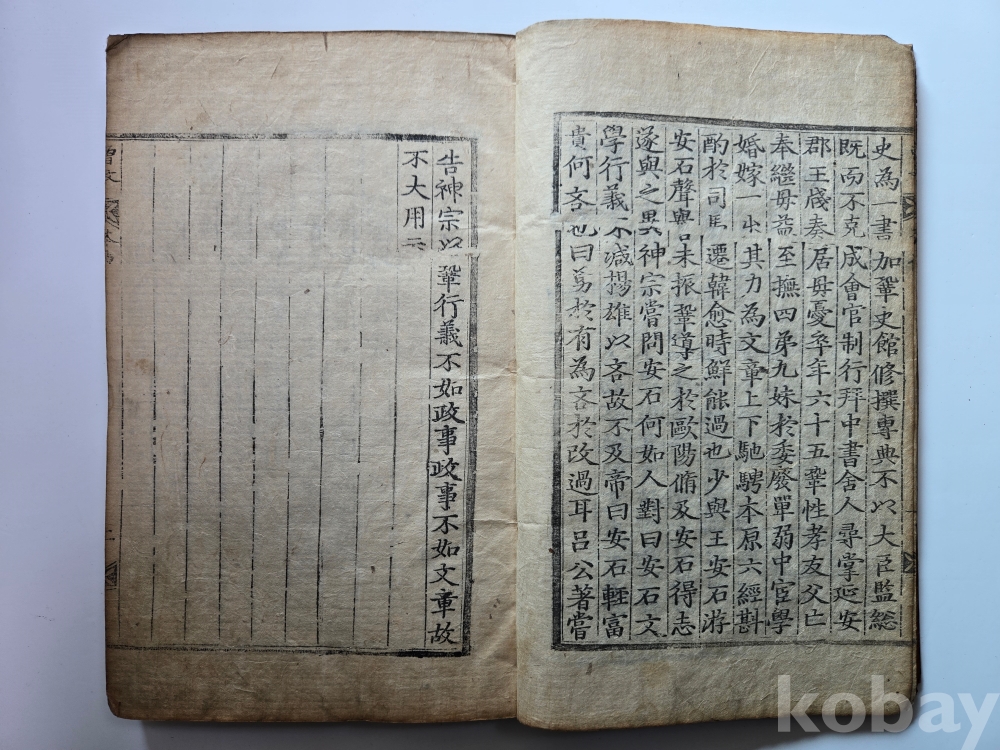 史為一書加鞏史館修撰專典不以大臣監総
既而不克成會官制行拜中書舍人尋掌延安
郡王牋奏居母憂卒年六十五鞏性孝友父亡
奉繼母益至撫四弟九妹於委廢單弱中宦學
婚嫁一出其力為文章上下馳騁本原六經斟
酌於司馬遷韓愈時鮮能過也少與王安石游
安石聲譽未振鞏導之於歐陽脩及安石得志
遂與之異神宗嘗問安石何如人對曰安石文
學行義不減揚雄以吝故不及帝曰安石輕富
貴何吝也曰勇於有為吝於改過耳呂公著嘗
告神宗以鞏行義不如政事政事不如文章故
不大用云
kobay